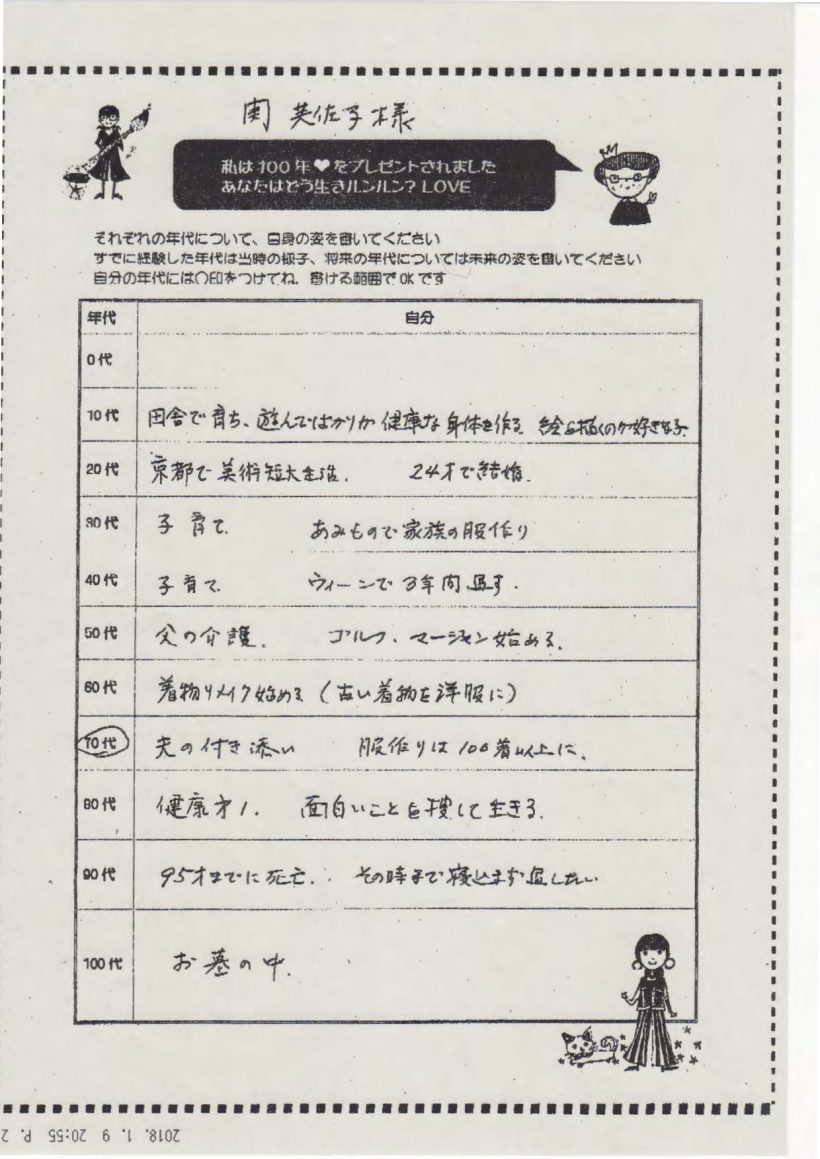 関 英佐子様
私は100年♥をプレゼントされました
あなたはどう生きルンルン? LOVE
それぞれの年代について、自身の姿を書いてください
すでに経験した年代は当時の様子、将来の年代については未来の姿を書いてください
自分の年代には○印をつけてね. 書ける範囲でOKです
年代 自分
0代
10代 田舎で育ち、遊んでばかりか健康な身体を作る. 絵を描くのが好きな子.
20代 京都で美術短大生活. 24才で結婚.
30代 子育て. あみもので家族の服作り
40代 子育て. ウィーンで3年間過す.
50代 父の介護. ゴルフ、マージャン始める.
60代 着物リメイク始める (古い着物を洋服に)
70代 夫の付き添い 服作りは100着以上に.
80代 健康才1. 面白いことを捜して生きる.
90代 95才までに死亡. その時まで寝込まず過したい
100代 お墓の中.
2018. 1. 9 20:55 P. 2